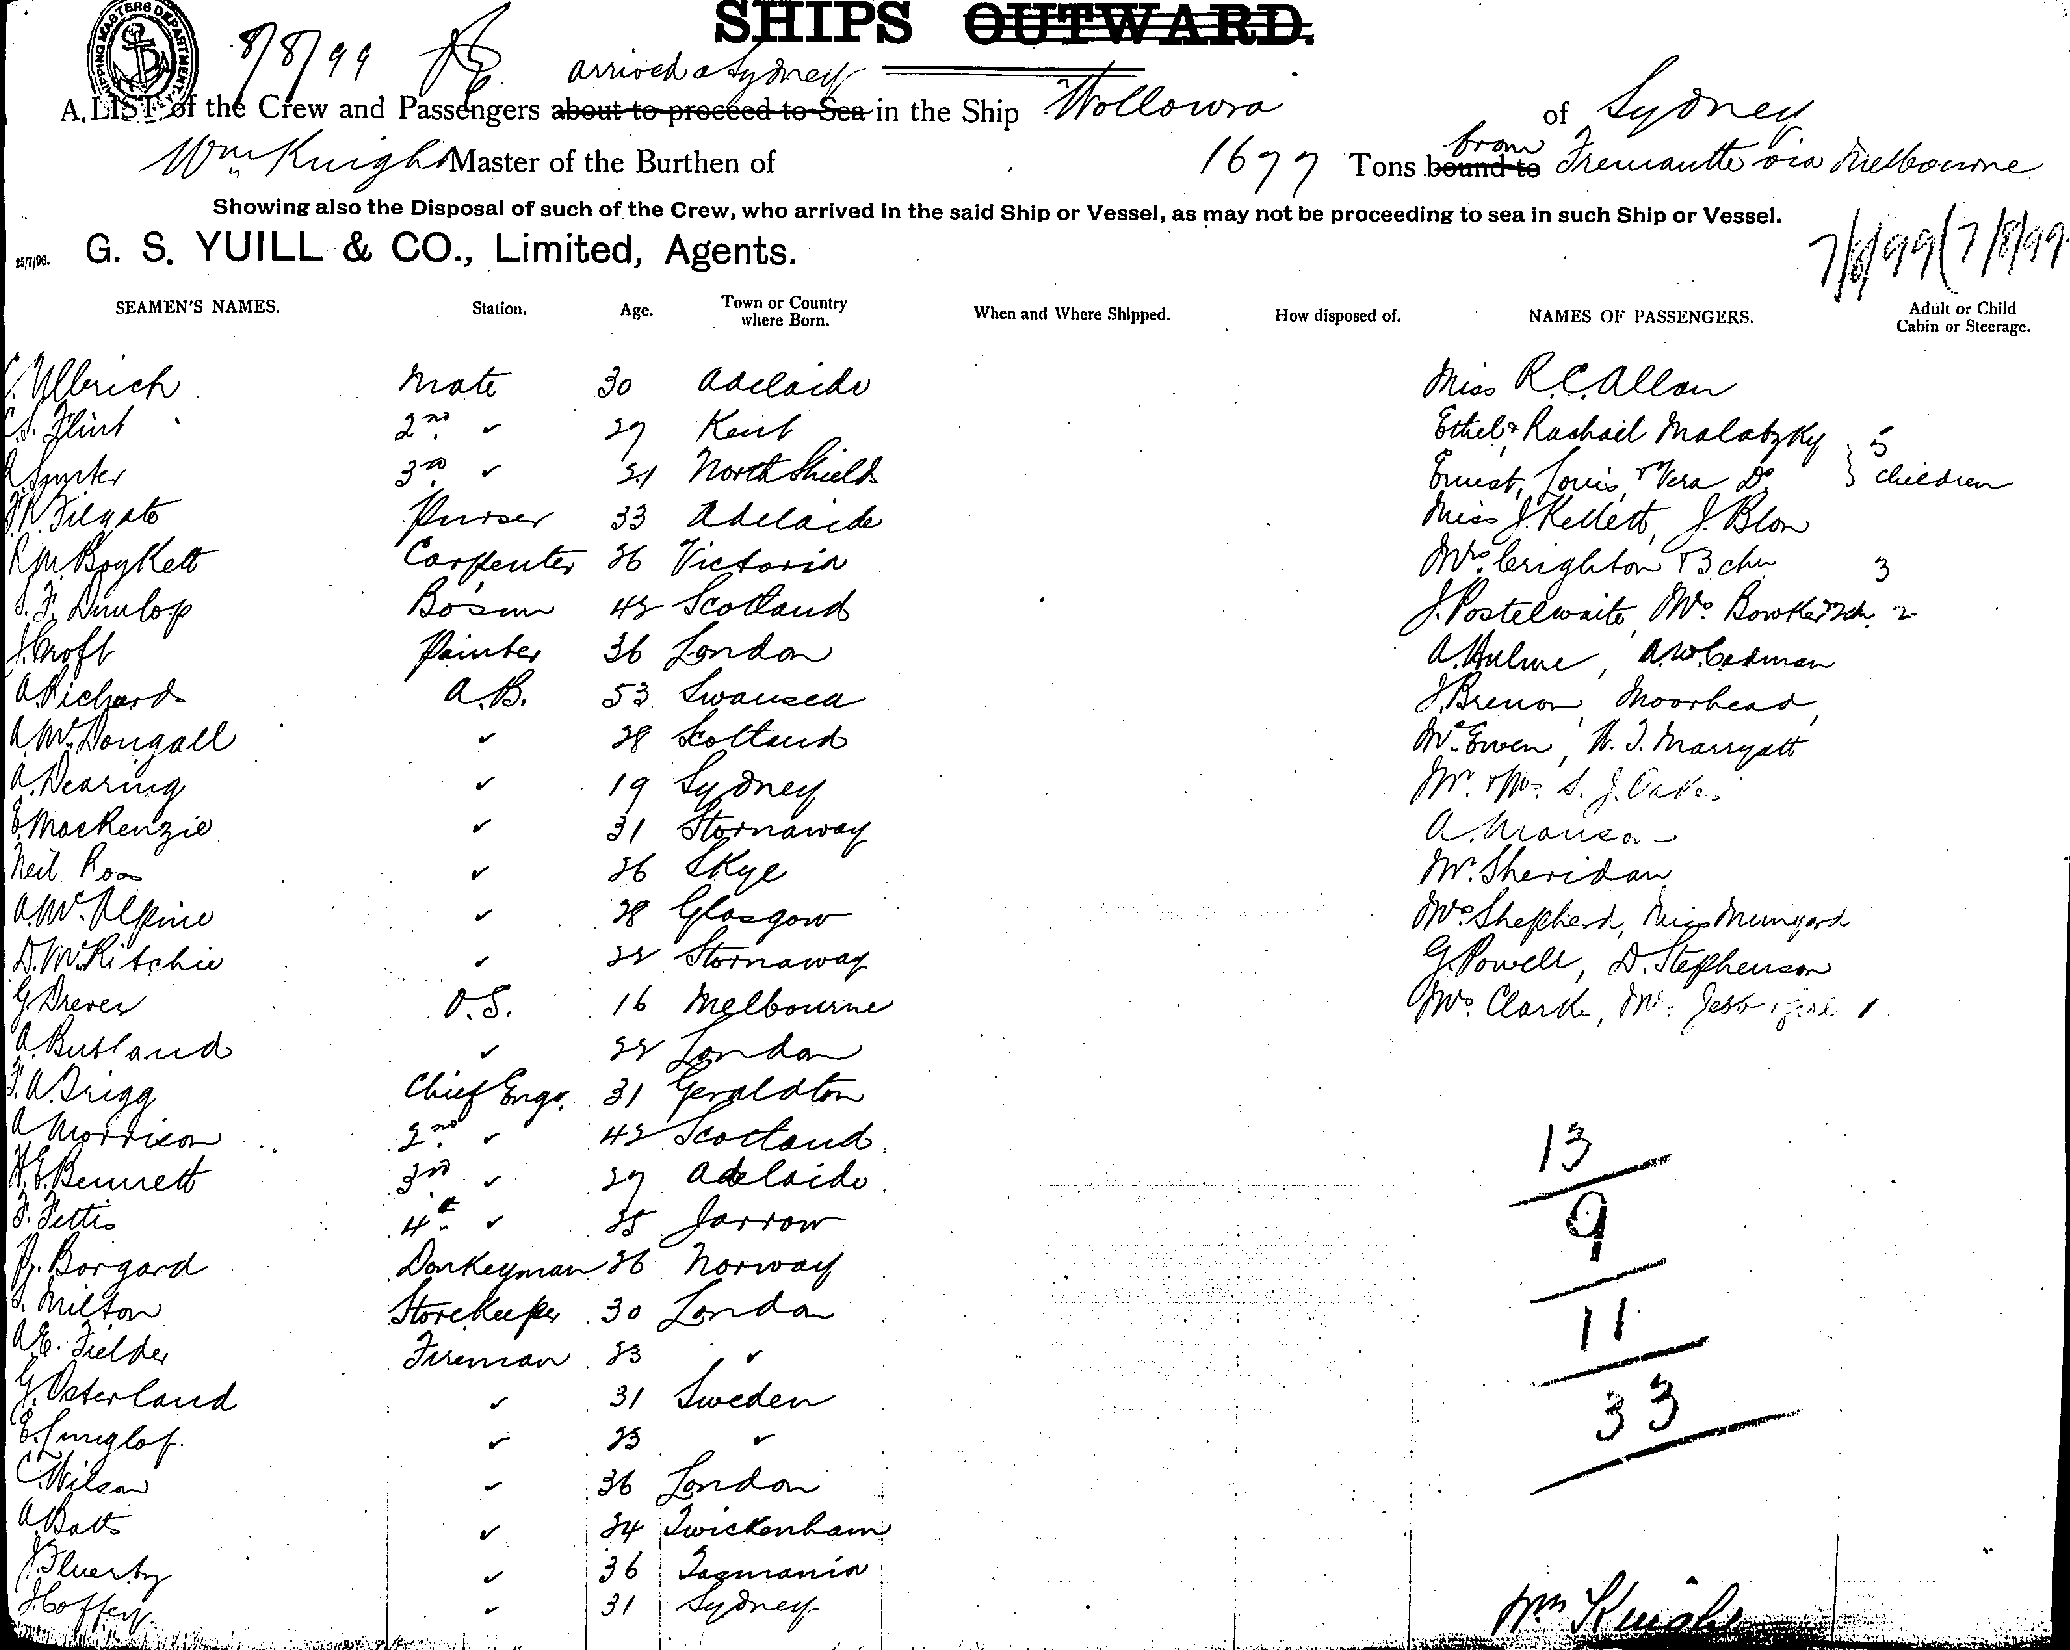 SHIPS OUTWARD.
SHIPPING MASTERS DEPARTMENT
8/8/99
arrived @ Sydney
A LIST of the Crew and Passengers about to proceed to Sea in the Ship Wollowra of Sydney
from
Wm Knight Master of the Burthen of 1677 Tons bound to Fremantle via Melbourne
Showing also the Disposal of such of the Crew, who arrived in the said Ship or Vessel, as may not be proceeding to sea in such Ship or Vessel.
G. S. YUILL & CO., Limited, Agents. 7/8/99 (7/8/99
SEAMEN'S NAMES. Station. Age. Town or Country where Born. When and Where Shipped. How disposed of. NAMES OF PASSENGERS. Adult or Child Cabin or Steerage.
Ullrich Mate 30 Adelaide Miss R.C. Allan
S. Flint 2nd " 27 Kent Ethel & Rachail Malatzky 5
3rd " 21 North Shields Ernest, Louis, & Vera Do children
Filgate Purser 33 Adelaide Miss J. Kellett, J. Blow
R.M. Boykett Carpenter 26 Victoria Mrs Crighton & 3 chn 3
Dunlop Bosun 42 Scotland J. Postelwaite, Mrs Bowker & 2 ch 2
J. Croft Painter 36 London A. Hulme, A.W. Cadman
A. Richards A.B. 53 Swansea J. Brenon, Moorhead,
A. McDougall " 28 Scotland McEwen, W. J. Marryatt
A. Dearing " 19 Sydney Mr & Mrs S. J. Oakes
E. MacKenzie " 31 Stornaway A. Manson
Neil Ross " 26 Skye Mr. Sheridan
A. McAlpine " 28 Glasgow Mrs Shepherd, Miss Mungard
D. McRitchie " 22 Stornaway G. Powell, D. Stephenson
G. Drever O.S. 16 Melbourne Mrs Clark, Mr. Jebb & girl 1
A. Butland " 22 London
F. A. Trigg Chief Engr. 31 Geraldton
A Morrison 2nd " 42 Scotland 13
H. E. Bennett 3rd " 27 Adelaide
F. Fettis 4th " 25 Jarrow 9
Borgard Donkeyman 26 Norway
Milton Storekeeper 30 London 11
A.E. Fielder Fireman 23 "
G. Osterland " 31 Sweden 33
E. Lunglof " 23 "
C. Wilson " 36 London
A. Batts " 24 Twickenham
" 36 Tasmania
J. Coffey " 31 Sydney
Wm Knight